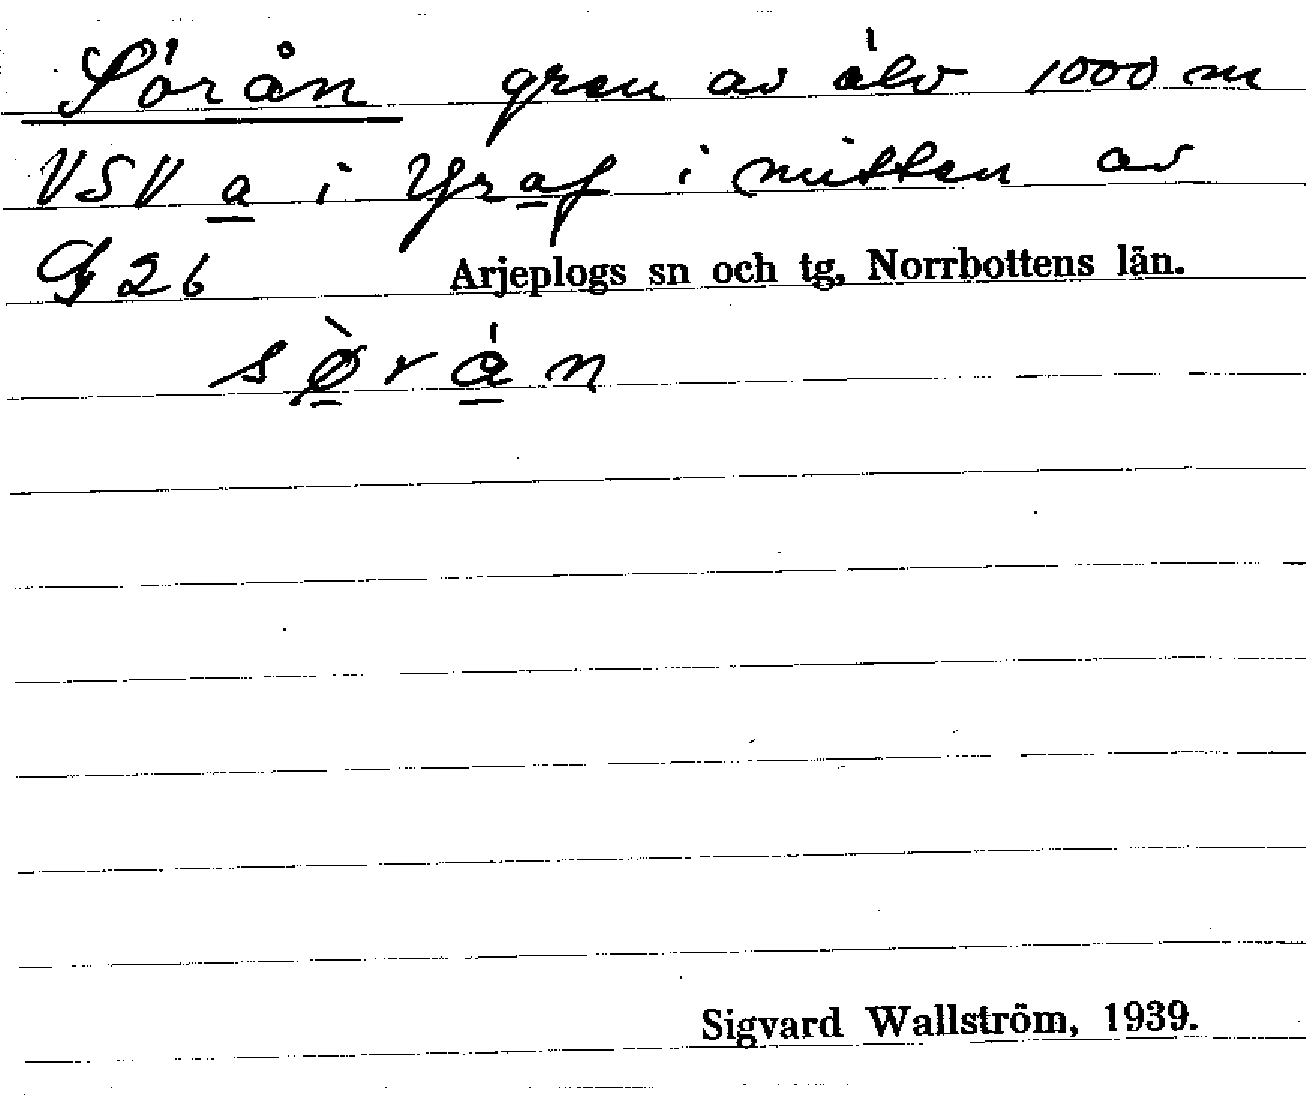 Sörån gren av älv 1000 m
VSV a i Yraf i mitten av
G 26 Arjeplogs sn och tg, Norrbottens län.
sø̀rǻn
Sigvard Wallström, 1939.